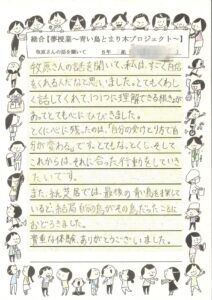 総合【夢授業〜青い鳥と止り木プロジェクト〜】
牧原さんの話を聞いて 5年 組
牧原さんの話を聞いて、私は、すごく自信
をくれる人だなと思いました。とてもくわし
く話してくれて、1つ1つに理解できる根きょが
あってとても心にひびきました。
とくに心に残ったのは、「自分の受けとり方で自
分が変わる」です。とてもなっとくし、そして
これからは、それに合った行動をしていき
たいです。
また、紙芝居では、最後の青い鳥を探して
いるど、結局 の鳥がその鳥だったことに
おどろきました。
貴重な体験、ありがとうございました。